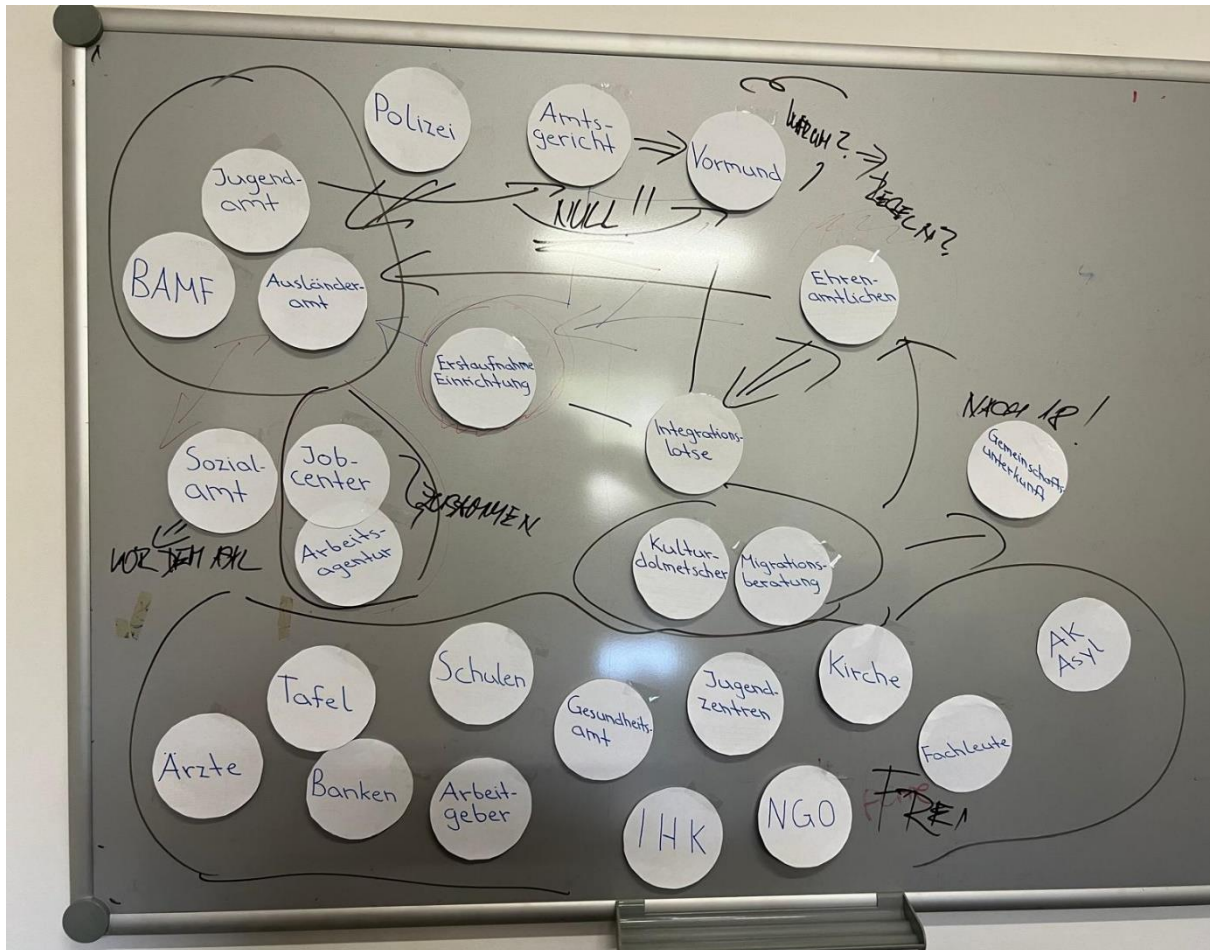 Polizei
Amts-
gericht
Vormund
WARUM?
REGELN?
Jugend-
amt
NULL!!
BAMF
Ausländer-
amt
Ehren-
amtlichen
Erstaufnahme
Einrichtung
Integrations-
lotse
NACH 18!
Gemeinschafts-
unterkunft
Sozial-
amt
Job-
center
ZUSAMMEN
Arbeits-
agentur
VOR DEM ASYL
Kultur-
dolmetscher
Migrations-
beratung
AK
Asyl
Schulen
Kirche
Tafel
Jugend-
zentren
Gesundheits-
amt
Fachleute
Ärzte
Banken
Arbeit-
geber
IHK
NGO
FREI